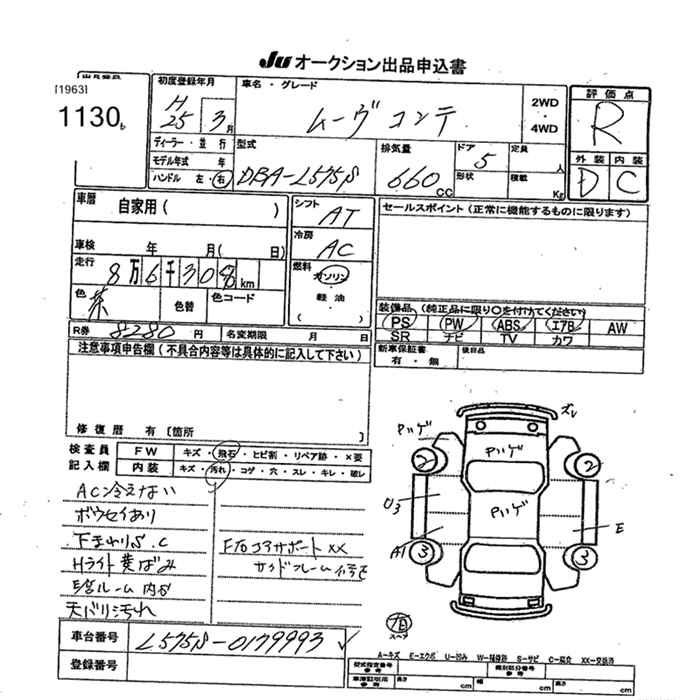 JU オークション出品申込書
[1963]
1130
初度登録年月 H25 3月
車名・グレード ムーヴコンテ
2WD・4WD
評価点 R
外装 内装
D C
ディーラー・並行
モデル年式 年
ハンドル 左・右
型式 DBA-L575S
排気量 660CC
ドア 5 形状
定員 人
積載 Kg
車歴 自家用( )
シフト AT
セールスポイント(正常に機能するものに限ります)
車検 年 月( 日)
冷房 AC
走行 8万6千308km
燃料 ガソリン・軽油・( )
色 茶 色替 色コード
装備品(純正品に限り○を付けてください)
PS PW ABS エアB AW
SR ナビ TV カワ
R券 8280円 名変期限 月 日
新車保証書 有・無 後日品
注意事項申告欄(不具合内容等は具体的に記入して下さい)
修復歴 有[箇所 ]
検査員記入欄
FW キズ・飛石・ヒビ割・リペア跡・×要
内装 キズ・汚れ・コゲ・穴・スレ・キレ・破レ
AC冷えない
ボウセイあり
下まわりS.C
Hライト黄ばみ
天バリ汚れ
コアサポートXX
サイドフレーム
ズレ
Pハゲ
Pハゲ
Pハゲ
2 2
U3
E
3 3
車台番号 L575S-0179993
登録番号
A-キズ E-エクボ U-凹み W-補修跡 S-サビ C-腐食 XX-交換済
型式指定番号参考 類別区分番号参考
車庫証明用参考 長さ cm 幅 cm 高さ cm